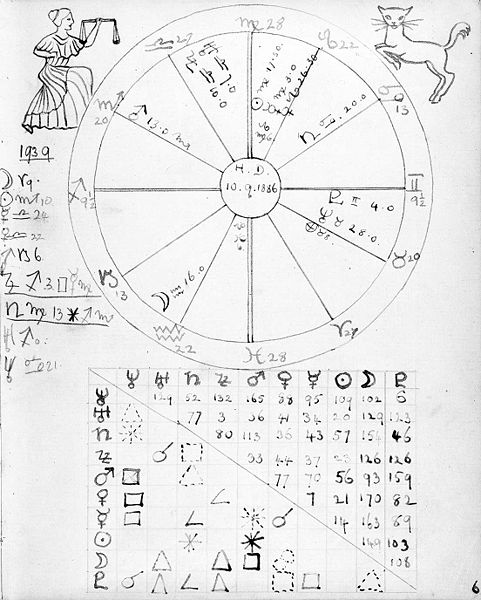 ♍ 28
♎ 27
♌ 22
♏ 20
13
♐ 9½
♊ 9½
♑ 13
♉ 20
22
♓ 28
♈ 27
♂ 13.0 ♏
♄ ♋ 20.0
H.D.
10.9.1886
♇ ♊ 4.0
♆ ♉ 28.0
☽ ♒ 16.0
1939
☽ ♈ 9.
☉ ♏ 10.
☿ ♎ 24
♀ ♎ 22
♂ ♑ 6.
♅ ♐ 0.
♆ ♋ 021.
♆ ♅ ♄ ♃ ♂ ♀ ☿ ☉ ☽ ♇
♆ 129 52 132 165 88 95 109 102 6
♅ 77 3 36 41 34 20 129 123
♄ 80 113 36 43 57 154 46
♃ 33 44 37 23 126 126
♂ 77 70 56 93 159
♀ 7 21 170 82
☿ 14 163 89
☉ 149 103
☽ 108
♇
6